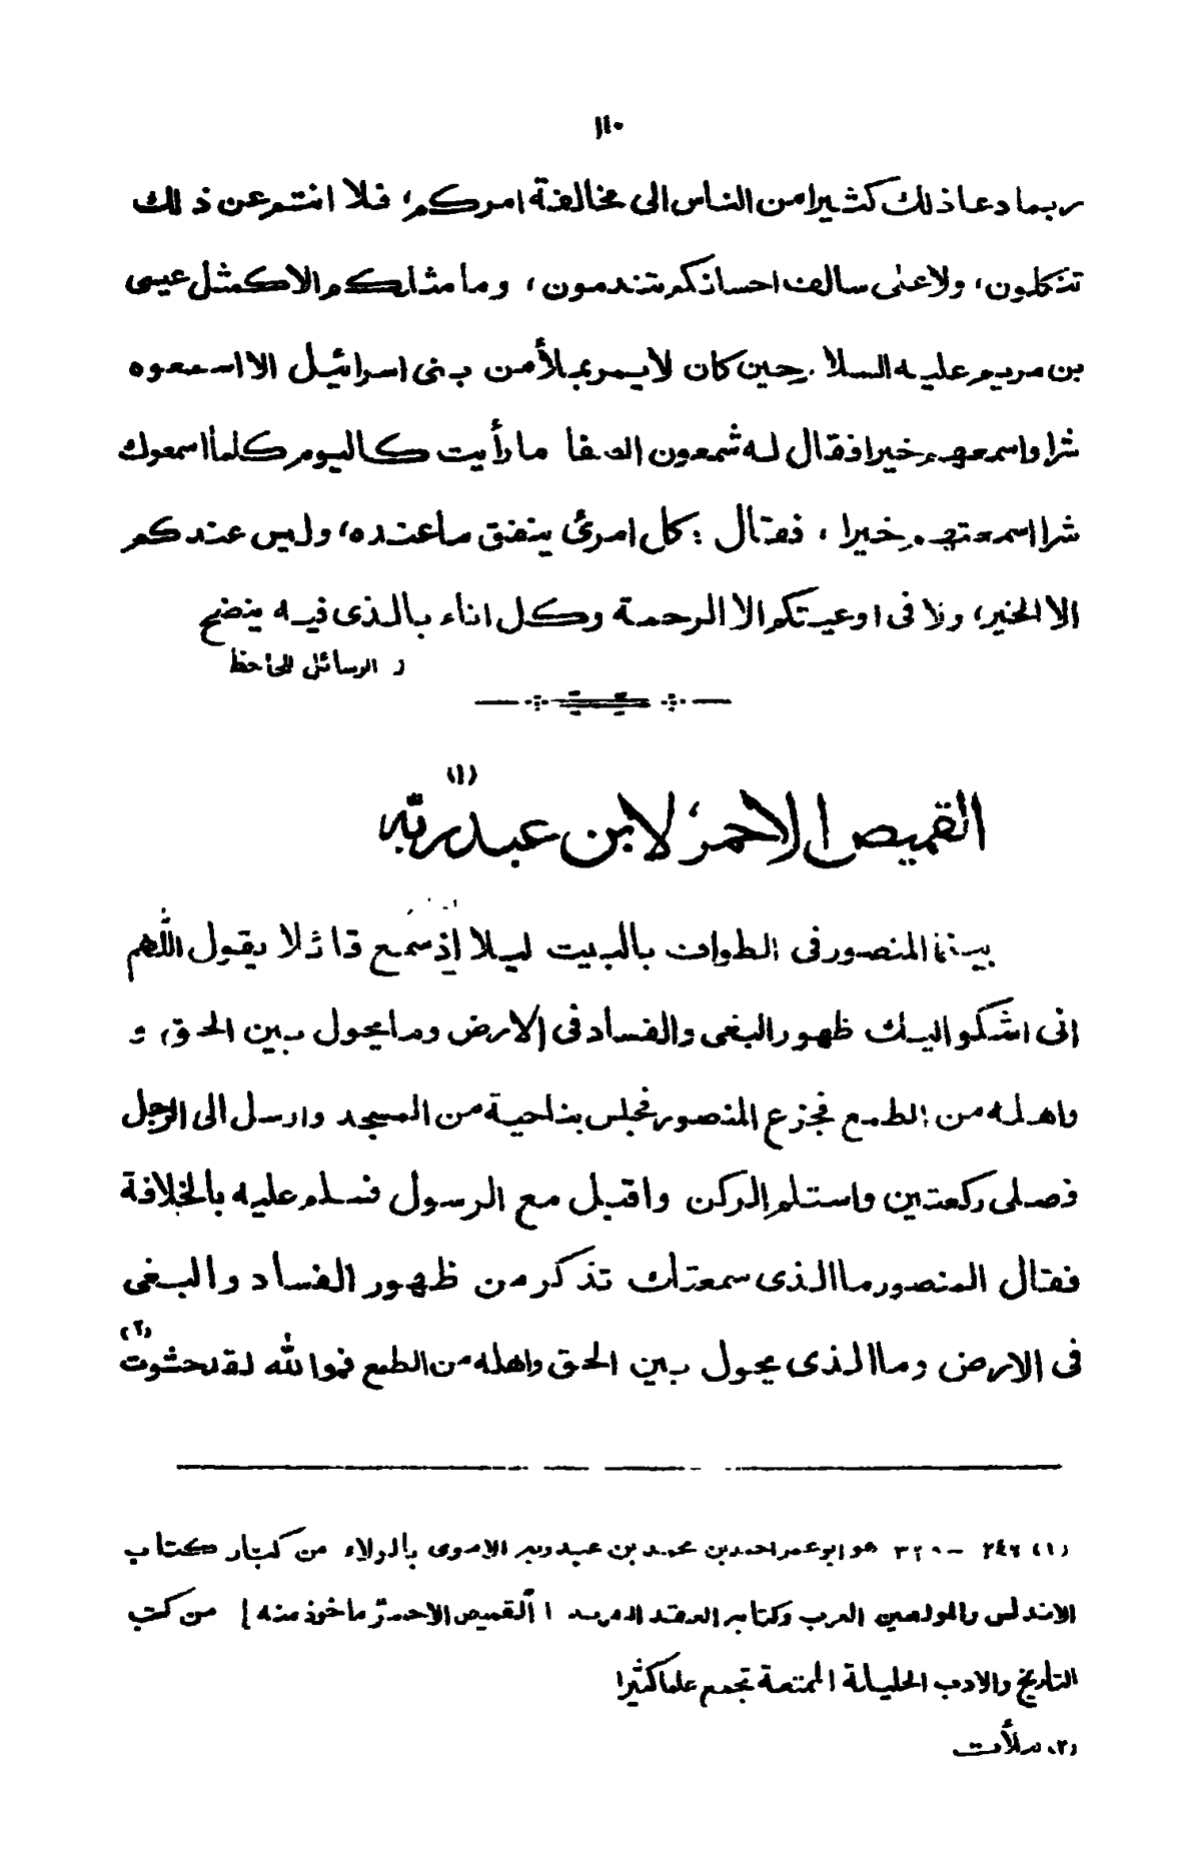 ١١٠
ربما دعا ذلك كثيرا من الناس الى مخالفة امركم، فلا انتم عن ذلك
تنكلون، ولا على سالف احسانكم تندمون، وما مثلكم الا كمثل عيسى
بن مريم عليه السلام حين كان لا يمر بملأ من بنى اسرائيل الا اسمعوه
شرا واسمعهم خيرا فقال له شمعون الصفا ما رأيت كاليوم كلما اسمعوك
شرا اسمعتهم خيرا، فقال : كل امرئ ينفق ما عنده، وليس عندكم
الا الخير، ولا فى اوعيتكم الا الرحمة وكل اناء بالذى فيه ينضح
ز الرسائل للجاحظ
القميص الاحمر، لابن عبد ربّه (١)
بينما المنصور فى الطواف بالبيت ليلا إذ سمع قائلا يقول اللهم
انى اشكو اليك ظهور البغى والفساد فى الارض وما يحول بين الحق، و
واهله من الطمع فجزع المنصور فجلس بناحية من المسجد وارسل الى الرجل
فصلى ركعتين واستلم الركن واقبل مع الرسول فسلم عليه بالخلافة
فقال المنصور ما الذى سمعتك تذكر من ظهور الفساد والبغى
فى الارض وما الذى يحول بين الحق واهله من الطمع فوالله لقد حشوت (٢)
(١) ٢٤٦ - ٣٢٨ هو ابو عمر احمد بن محمد بن عبد ربه الاموى بالولاء من كبار كتاب
الاندلس والمولفين العرب وكتابه العقد الفريد [ القميص الاحمر ماخوذ منه ] من كتب
التاريخ والادب الجليلة الممتعة تجمع علما كثيرا
(٢) ملأت